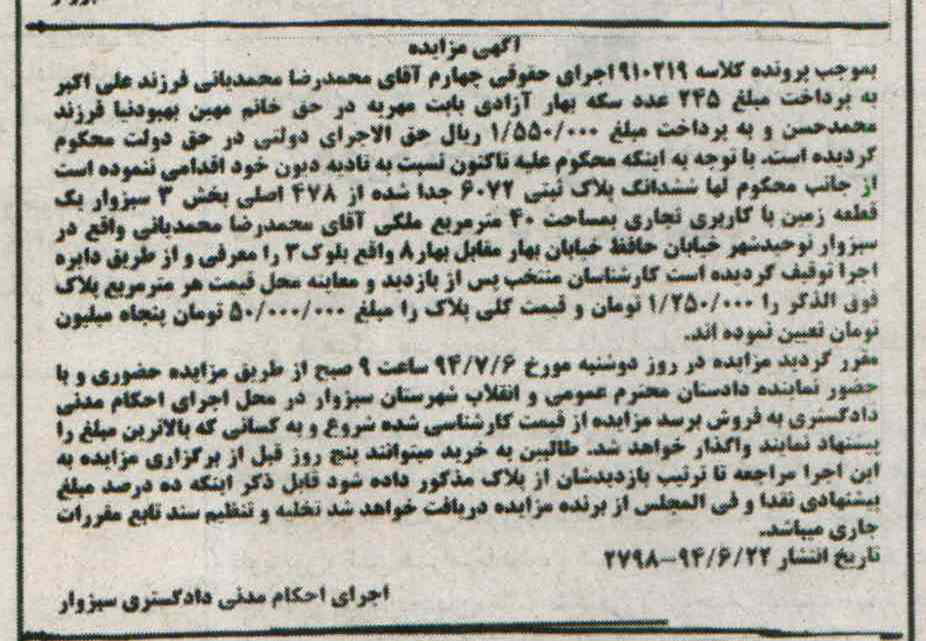 آگهی مزایده
بموجب پرونده کلاسه ۹۱۰۲۱۹ اجرای حقوقی چهارم آقای محمدرضا محمدیانی فرزند علی اکبر
به پرداخت مبلغ ۲۴۵ عدد سکه بهار آزادی بابت مهریه در حق خانم مهین بهبودنیا فرزند
محمدحسن و به پرداخت مبلغ ۱/۵۵۰/۰۰۰ ریال حق الاجرای دولتی در حق دولت محکوم
گردیده است. با توجه به اینکه محکوم علیه تاکنون نسبت به تادیه دیون خود اقدامی ننموده است
از جانب محکوم لها ششدانگ پلاک ثبتی ۶۰۷۲ جدا شده از ۴۷۸ اصلی بخش ۳ سبزوار یک
قطعه زمین با کاربری تجاری بمساحت ۴۰ مترمربع ملکی آقای محمدرضا محمدیانی واقع در
سبزوار توحیدشهر خیابان حافظ خیابان بهار مقابل بهار۸ واقع بلوک۳ را معرفی و از طریق دایره
اجرا توقیف گردیده است کارشناسان منتخب پس از بازدید و معاینه محل قیمت هر مترمربع پلاک
فوق الذکر را ۱/۲۵۰/۰۰۰ تومان و قیمت کلی پلاک را مبلغ ۵۰/۰۰۰/۰۰۰ تومان پنجاه میلیون
تومان تعیین نموده اند.
مقرر گردید مزایده در روز دوشنبه مورخ ۹۴/۷/۶ ساعت ۹ صبح از طریق مزایده حضوری و با
حضور نماینده دادستان محترم عمومی و انقلاب شهرستان سبزوار در محل اجرای احکام مدنی
دادگستری به فروش برسد مزایده از قیمت کارشناسی شده شروع و به کسانی که بالاترین مبلغ را
پیشنهاد نمایند واگذار خواهد شد. طالبین به خرید میتوانند پنج روز قبل از برگزاری مزایده به
این اجرا مراجعه تا ترتیب بازدیدشان از پلاک مذکور داده شود قابل ذکر اینکه ده درصد مبلغ
پیشنهادی نقدا و فی المجلس از برنده مزایده دریافت خواهد شد تخلیه و تنظیم سند تابع مقررات
جاری میباشد.
تاریخ انتشار ۹۴/۶/۲۲-۲۷۹۸
اجرای احکام مدنی دادگستری سبزوار